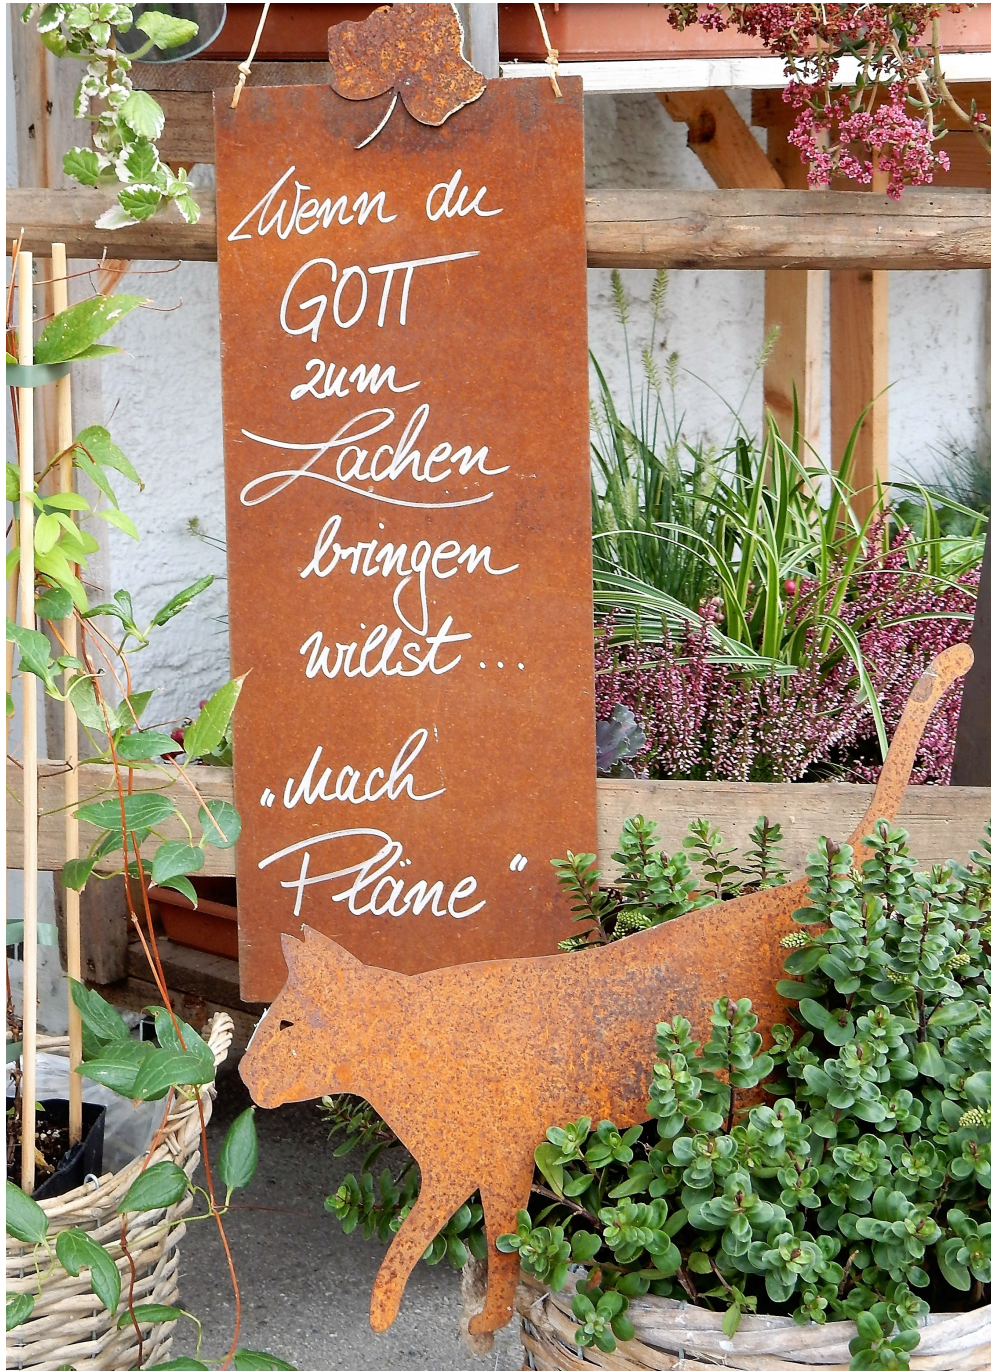 Wenn du
GOTT
zum
Lachen
bringen
willst...
„Mach
Pläne“